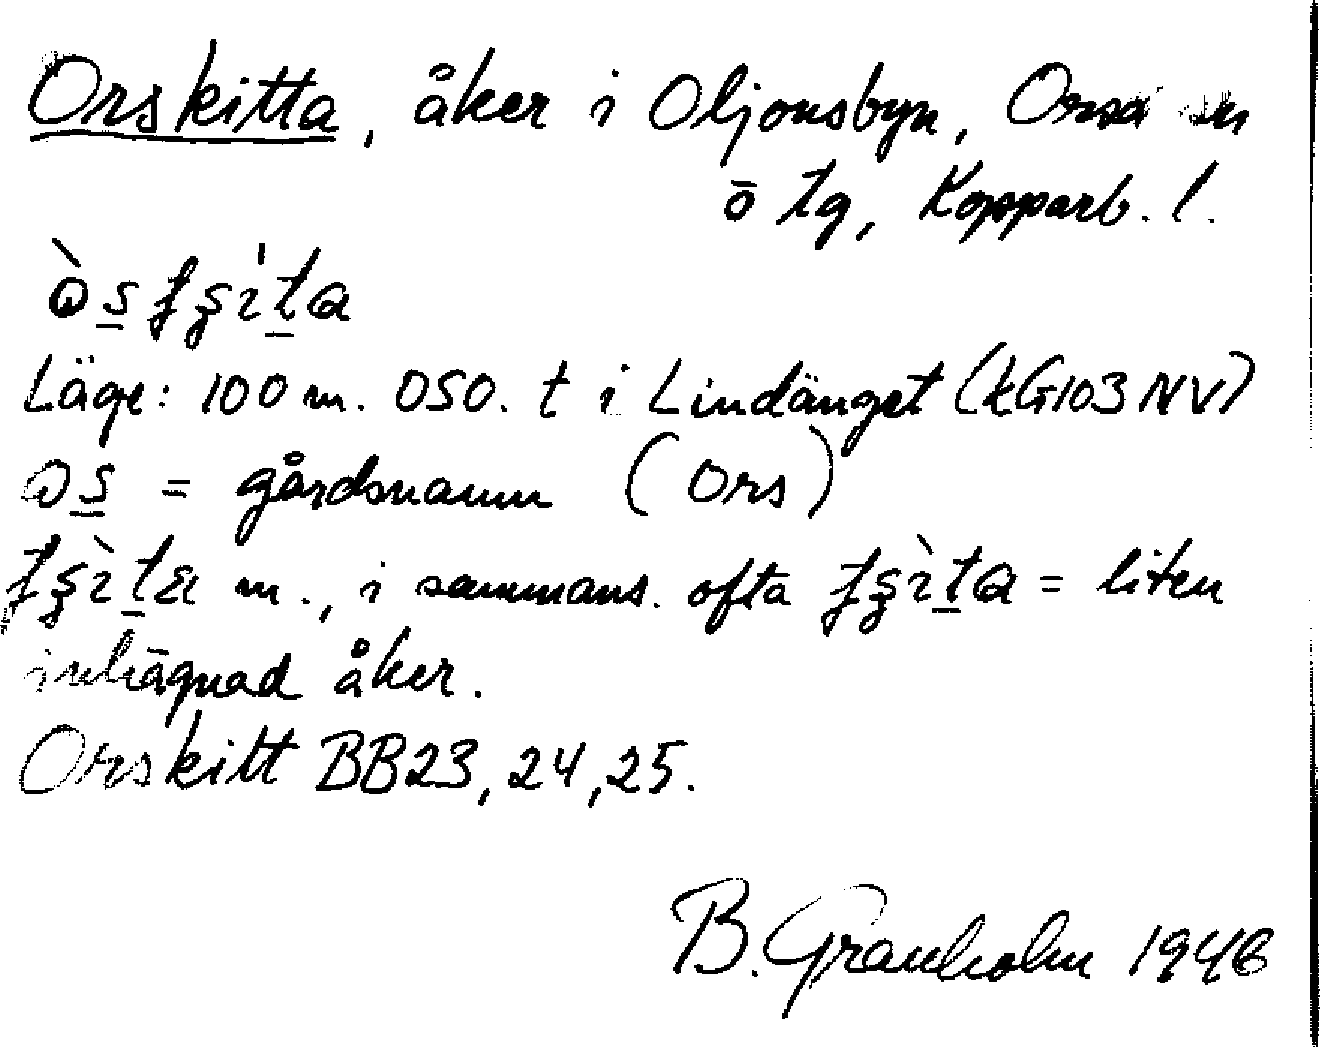 Orskitta, åker i Oljonsbyn, Orsa sn
ö tg, Kopparb. l.
Läge: 100 m. OSO. t i Lindänget (kG103 NV)
= gårdsnamn (Ors)
m., i sammans. ofta = liten
inhägnad åker.
Orskitt BB23, 24, 25.
B. Granholm 1946